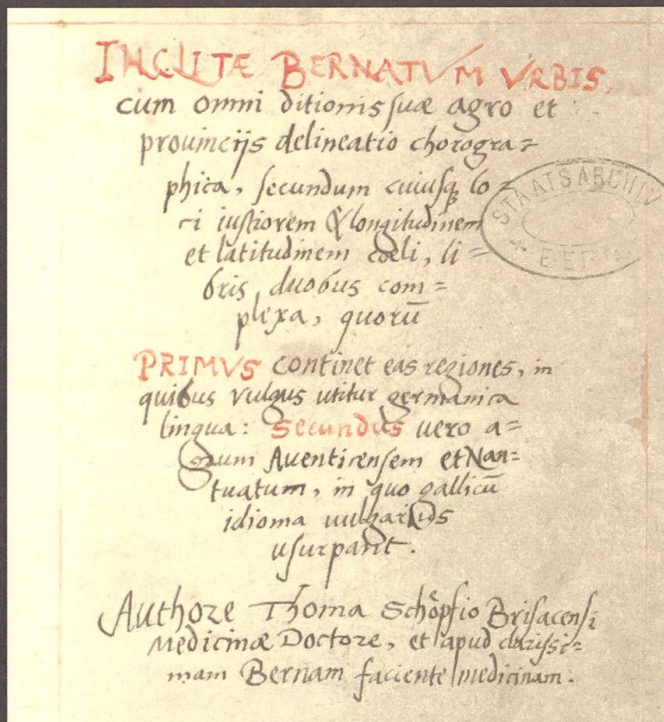 INCLITÆ BERNATVM VRBIS,
cum omni ditionis suæ agro et
prouincijs delineatio chorogra=
phica, secundum cuiusq; lo=
ci iustiorem & longitudinem
et latitudinem cœli, li=
bris duobus com=
plexa, quorū
PRIMVS continet eas regiones, in
quibus vulgus vtitur germanica
lingua: Secundus vero a=
grum Auenticensem et Nan=
tuatum, in quo gallicū
idioma uulgarius
usurpant.
Authore Thoma Schöpfio Brisacensi
Medicinæ Doctore, et apud clarissi=
mam Bernam faciente medicinam.
STAATSARCHIV